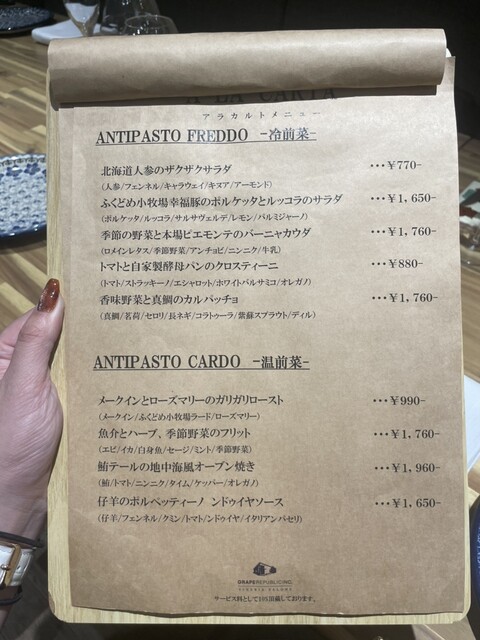 A LA CARTA
アラカルトメニュー
ANTIPASTO FREDDO -冷前菜-
北海道人参のザクザクサラダ ･･･¥770-
(人参/フェンネル/キャラウェイ/キヌア/アーモンド)
ふくどめ小牧場幸福豚のポルケッタとルッコラのサラダ ･･･¥1,650-
(ポルケッタ/ルッコラ/サルサヴェルデ/レモン/パルミジャーノ)
季節の野菜と本場ピエモンテのバーニャカウダ ･･･¥1,760-
(ロメインレタス/季節野菜/アンチョビ/ニンニク/牛乳)
トマトと自家製酵母パンのクロスティーニ ･･･¥880-
(トマト/ストラッキーノ/エシャロット/ホワイトバルサミコ/オレガノ)
香味野菜と真鯛のカルパッチョ ･･･¥1,760-
(真鯛/茗荷/セロリ/長ネギ/コラトゥーラ/紫蘇スプラウト/ディル)
ANTIPASTO CARDO -温前菜-
メークインとローズマリーのガリガリロースト ･･･¥990-
(メークイン/ふくどめ小牧場ラード/ローズマリー)
魚介とハーブ、季節野菜のフリット ･･･¥1,760-
(エビ/イカ/白身魚/セージ/ミント/季節野菜)
鮪テールの地中海風オーブン焼き ･･･¥1,960-
(鮪/トマト/ニンニク/タイム/ケッパー/オレガノ)
仔羊のポルペッティーノ ンドゥイヤソース ･･･¥1,650-
(仔羊/フェンネル/クミン/トマト/ンドゥイヤ/イタリアンパセリ)
GRAPEREPUBLICINC.
サービス料として10%頂戴しております。